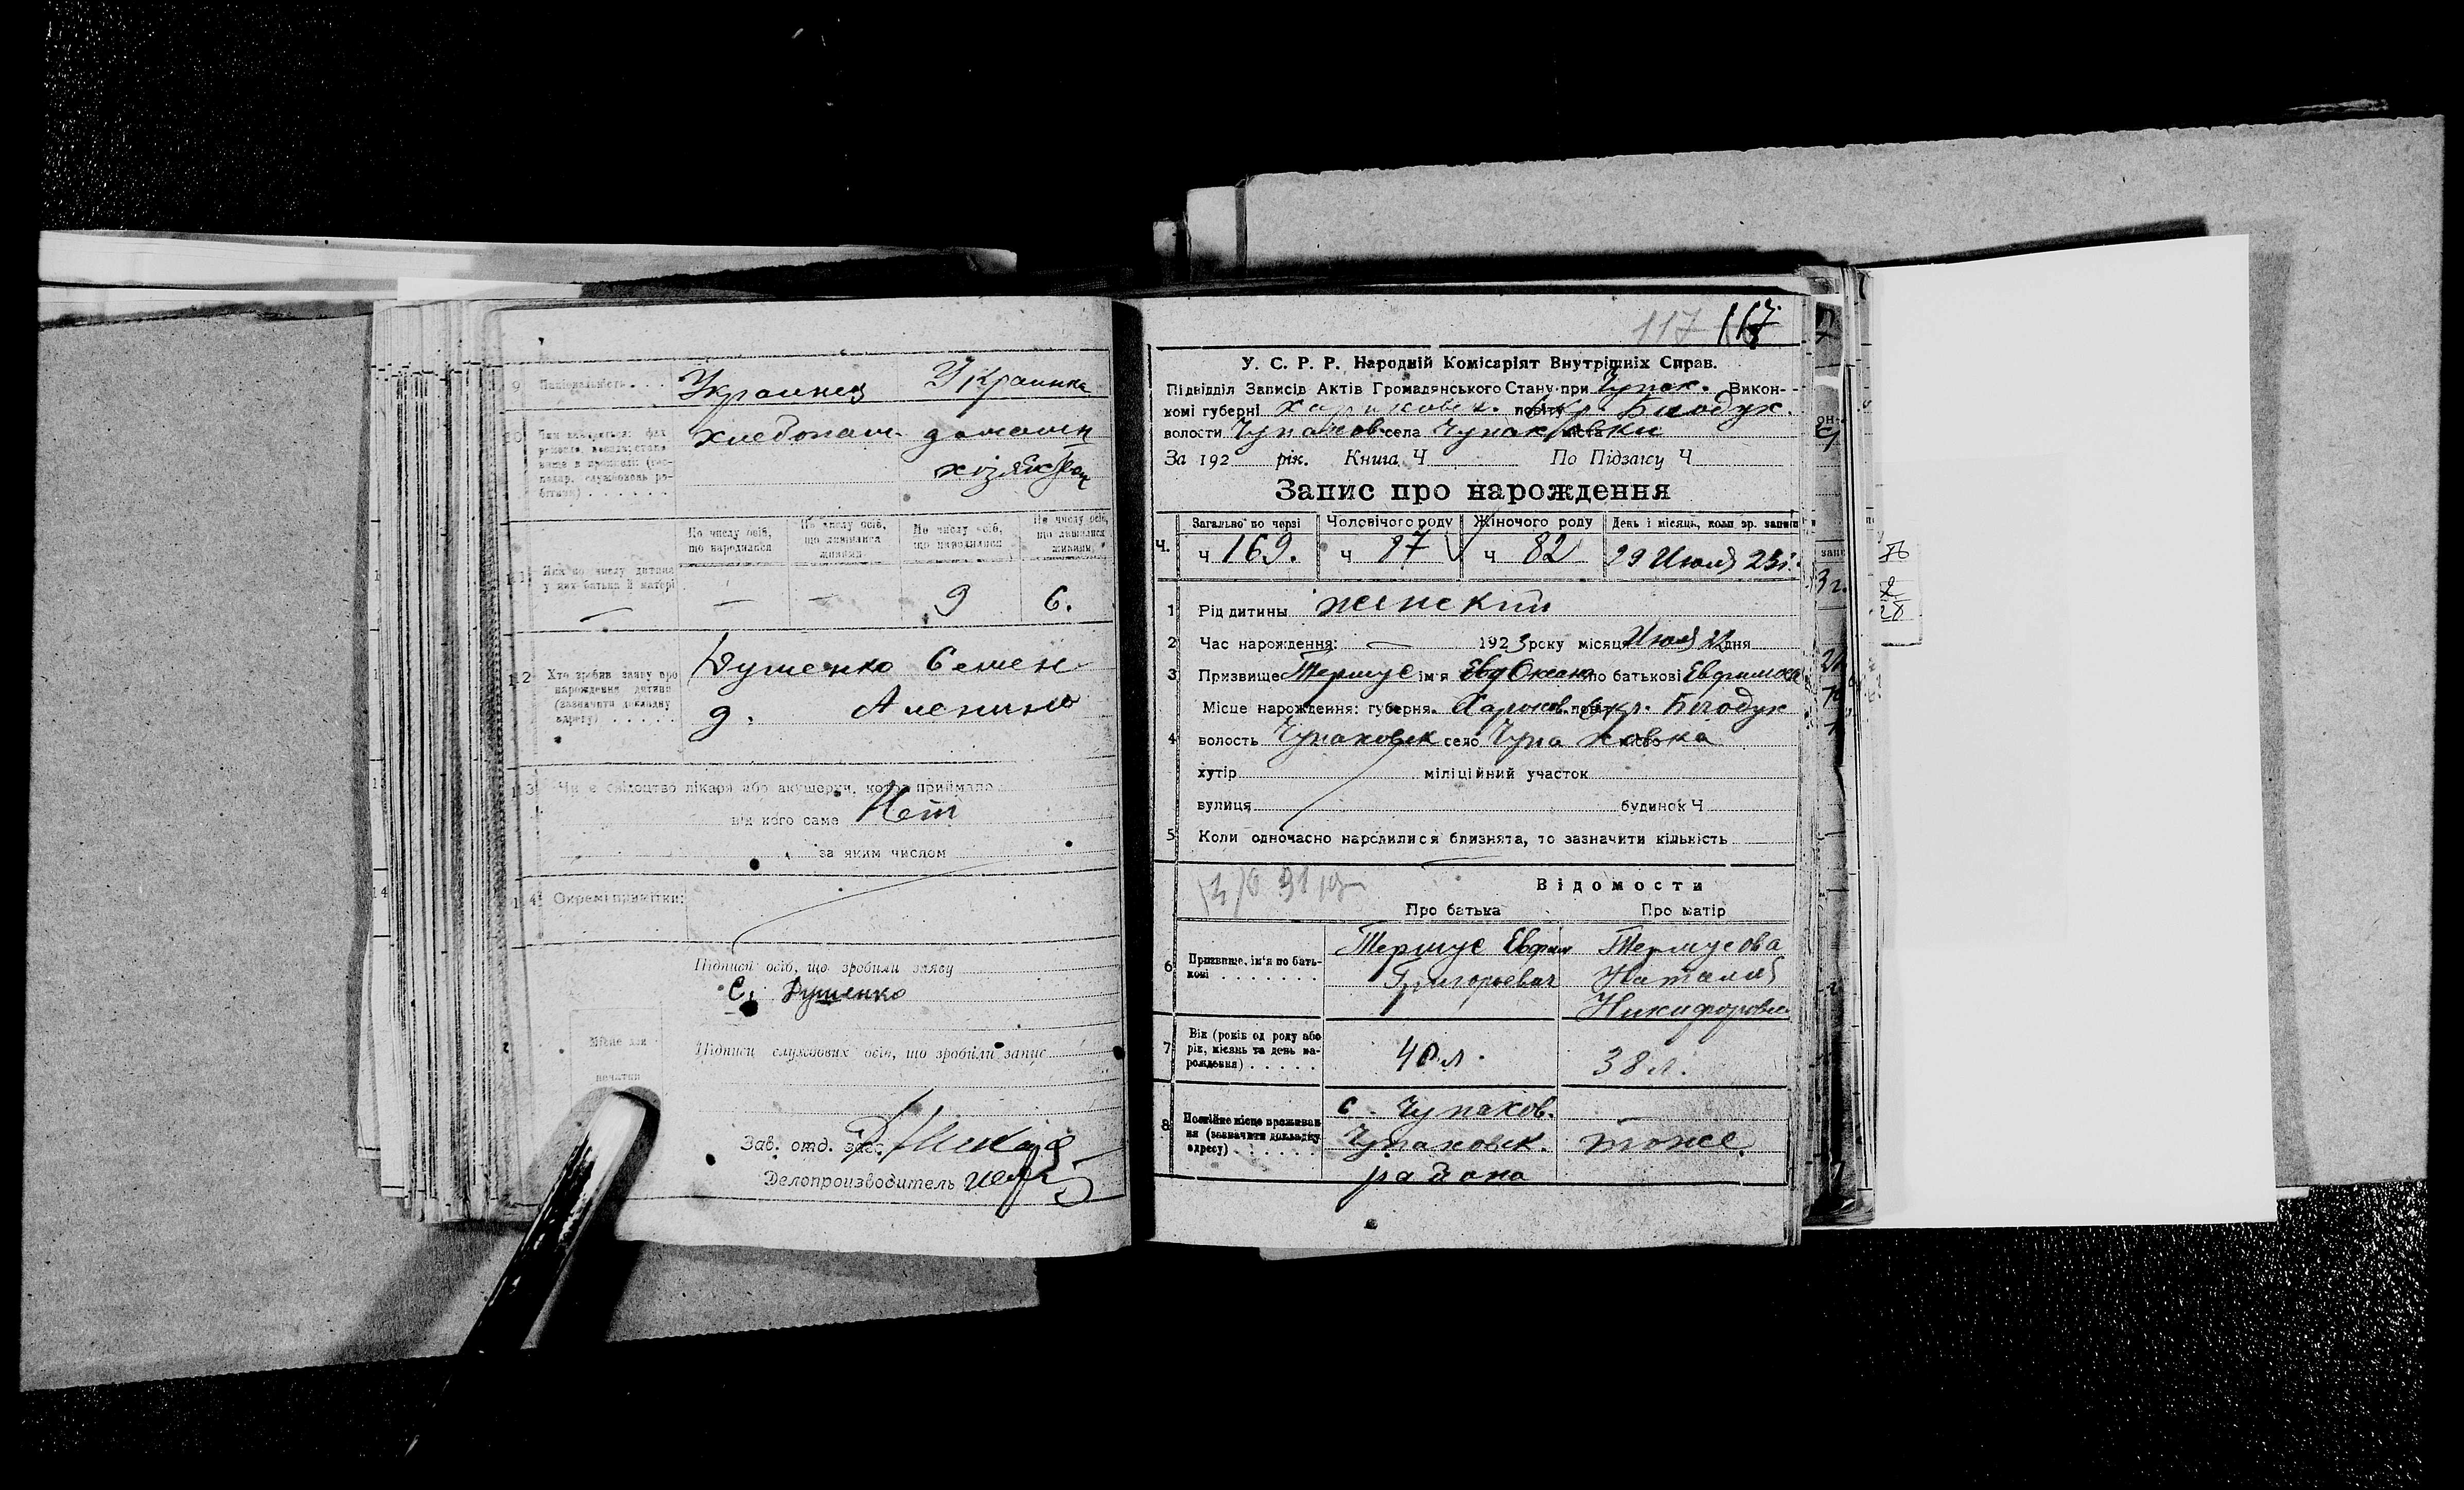 9 Національність . . . Украинец Украинка
10 Чим займається: фах хлебопаш. домашн
хозяйство
По числу осіб, що народилися По числу осіб, що лишилися живими По числу осіб, що народилися По числу осіб, що лишилися живими
11 Яка по числу дитина у них батька й матері — — — 9 6.
12 Хто зробив заяву про нарождення дитини (зазначити докладну адресу) Душенко Семен
д.
13 Чи є свідоцтво лікаря або акушерки, котра приймала
від кого саме Нет
за яким числом
14 Окремі примітки:
Підписи осіб, що зробили заяву
С. Душенко
Місце для печатки
Підписи службових осіб, що зробили запис
Зав. отд. загс.
Делопроизводитель
117 117
У. С. Р. Р. Народній Комісаріят Внутрішніх Справ.
Підвідділ Записів Актів Громадянського Стану при Чупах. Викон-
комі губерні Харьковск. повіту окр. Богодух.
волости Чупахов. села Чупаховки міста
За 192 рік. Книга Ч По Підзапису Ч
Запис про нарождення
Загально по черзі Чоловічого роду Жіночого роду День і місяць, коли зр. запис
Ч. ч 169. ч 87 ч 82 29 Июля 23г.
1 Рід дитини женский
2 Час нарождення: — 1923 року місяця Июля 22 дня
3 Призвище Термус ім'я Евд Оксана по батькові Евфимова
Місце нарождення: губерня Харьков. повіт окр. Богодух
4 волость Чупаховск село Чупаховка місто
хутір міліційний участок
вулиця будинок Ч
5 Коли одночасно народилися близнята, то зазначити кількість
Відомости
Про батька Про матір
6 Призвище, ім'я по бать- Термус Евфим Термусова
кові . . . . . . Григорьевич Наталия
Никифоровна
7 Вік (років од роду або рік, місяць та день нарождення) . . . . . 40 л. 38 л.
8 Постійне місце проживання (зазначити докладну адресу) . . . . . . с. Чупахов.
Чупаховск. тоже
района